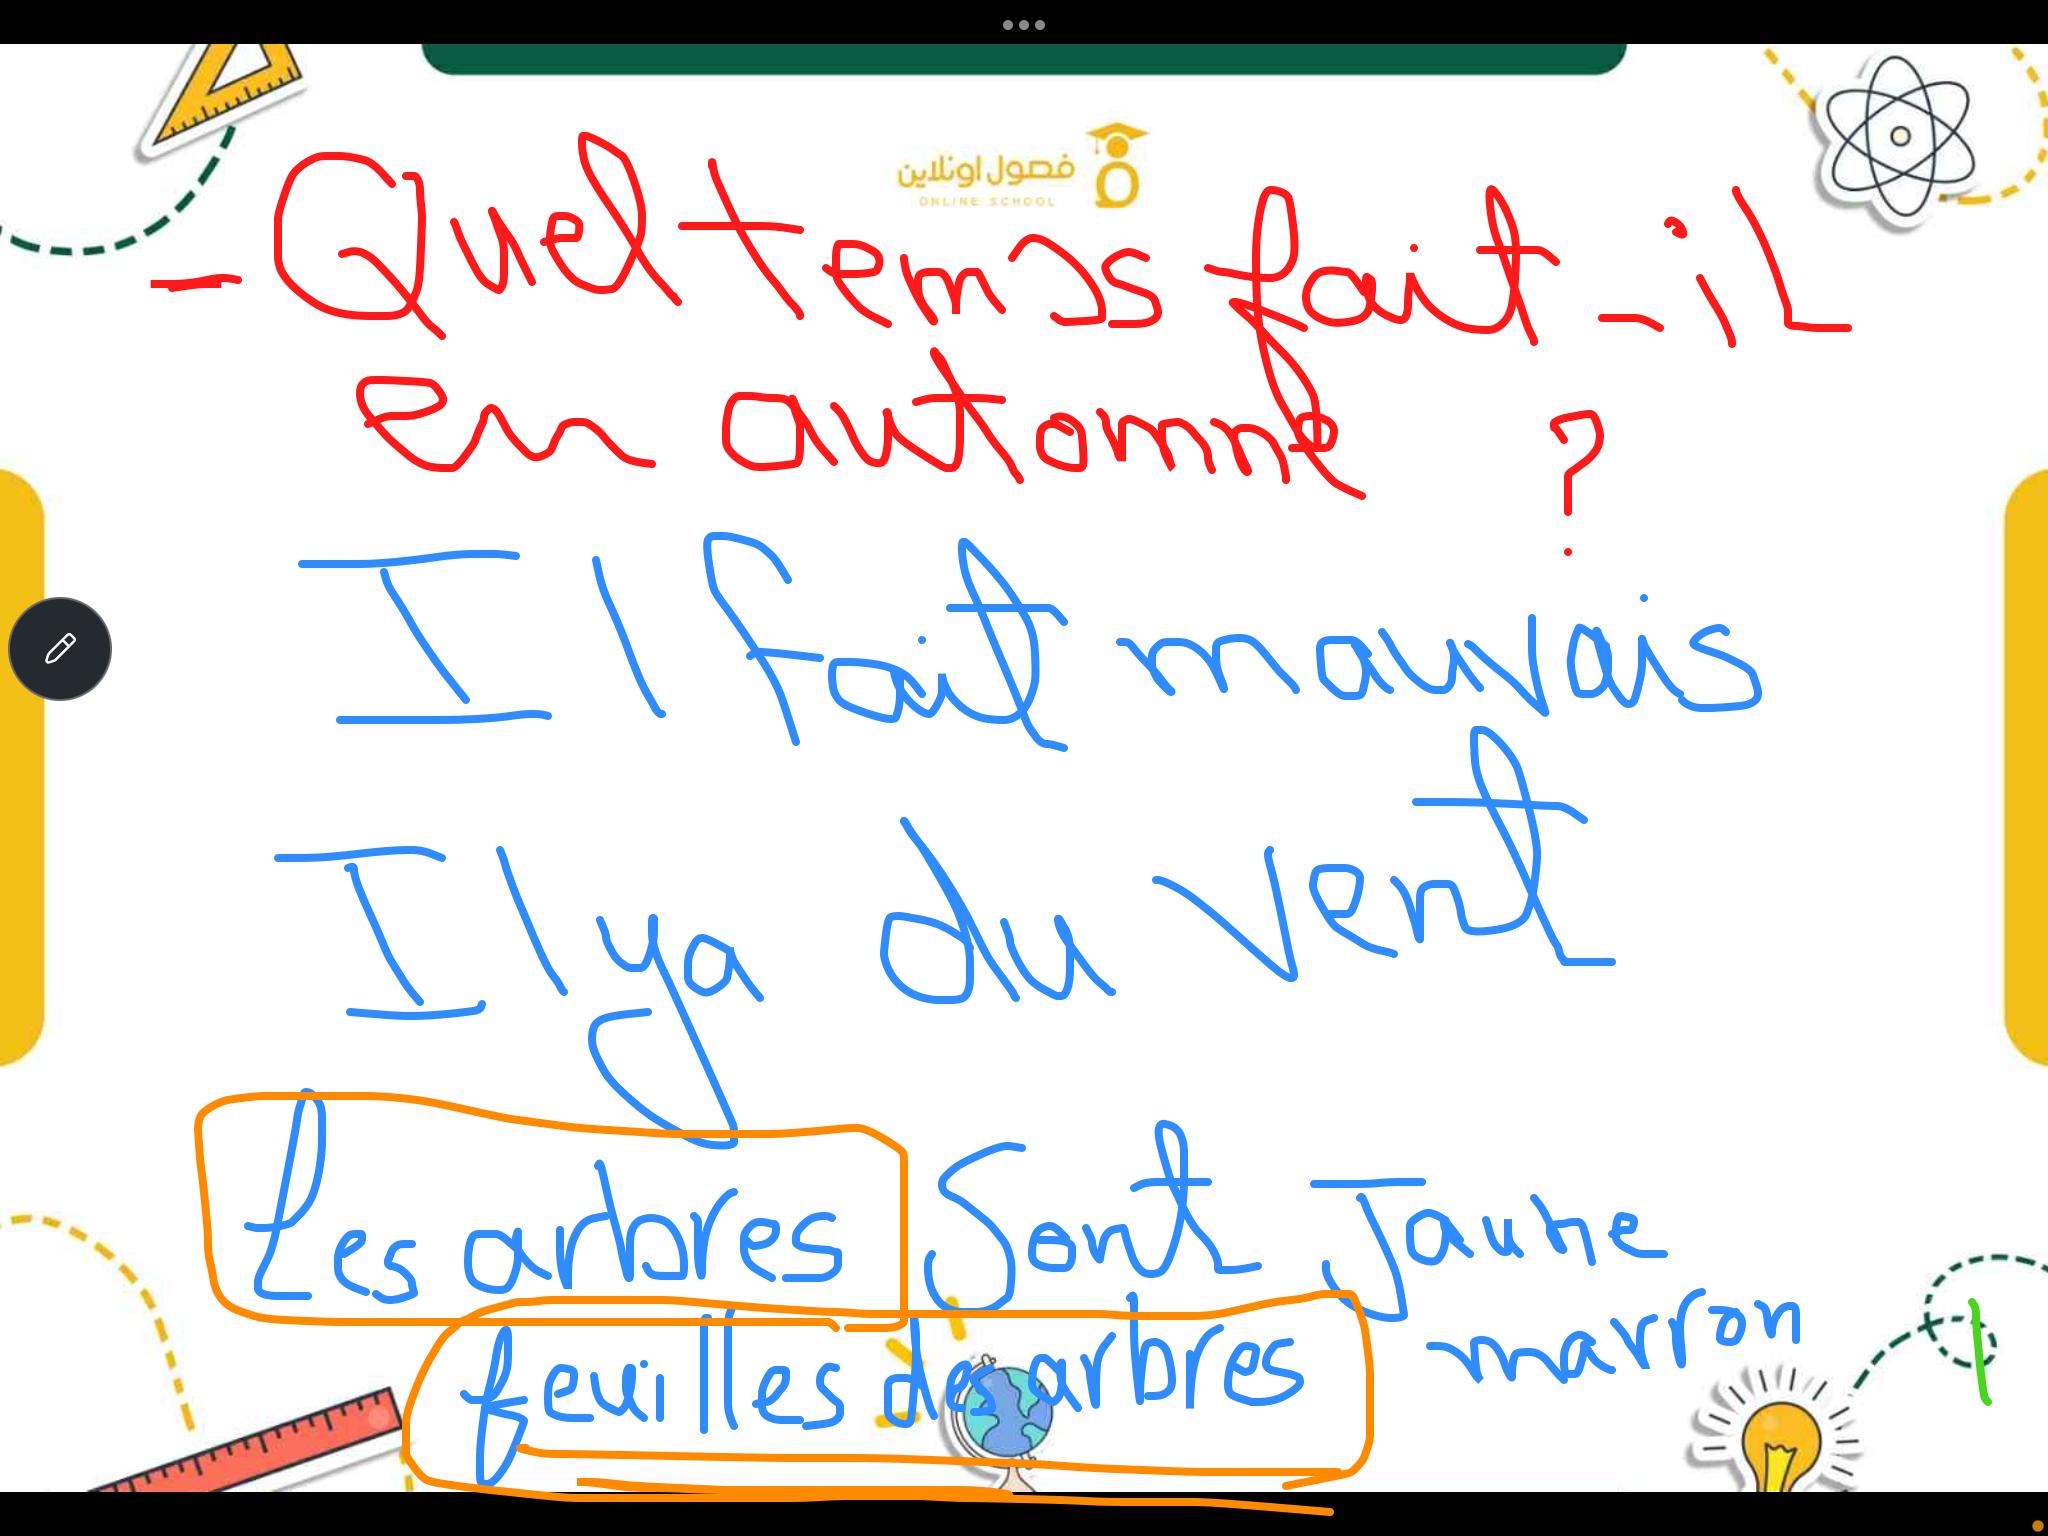 فصول اونلاين
ONLINE SCHOOL
- Quel temps fait-il
en automne ?
Il fait mauvais
Il ya du vent
Les arbres sont Jaune
marron
feuilles des arbres